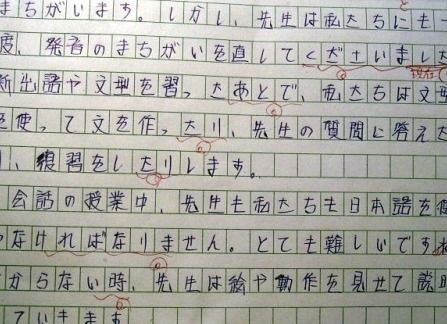 まちがいます。しかし、先生は私たちにも
度、発音のまちがいを直してくださいました
新出語や文型を習ったあとで、私たちは文型
を使って文を作ったり、先生の質問に答えた
り、復習をしたりします。
会話の授業中、先生も私たちも日本語を使
わなければなりません。とても難しいですね
からない時、先生は絵や動作を見せて説明
ていきます